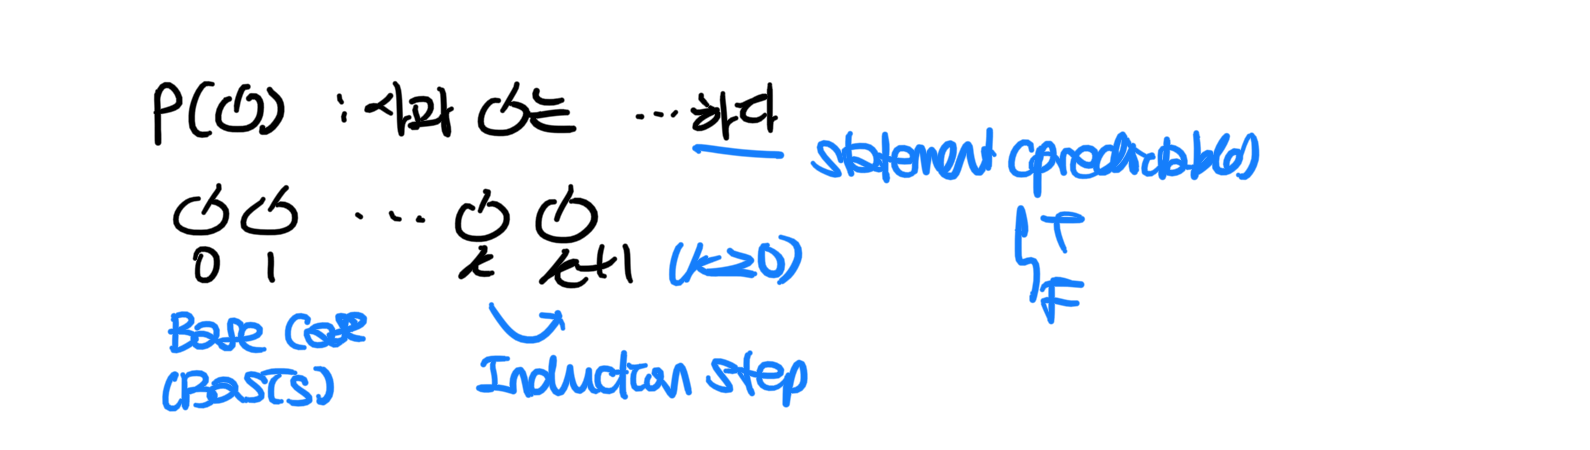 P( ) : 사과 는 ... 하다
statement (predictable)
T
F
...
0 1 k k+1 (k≥0)
Base Case
(Basis)
Induction step